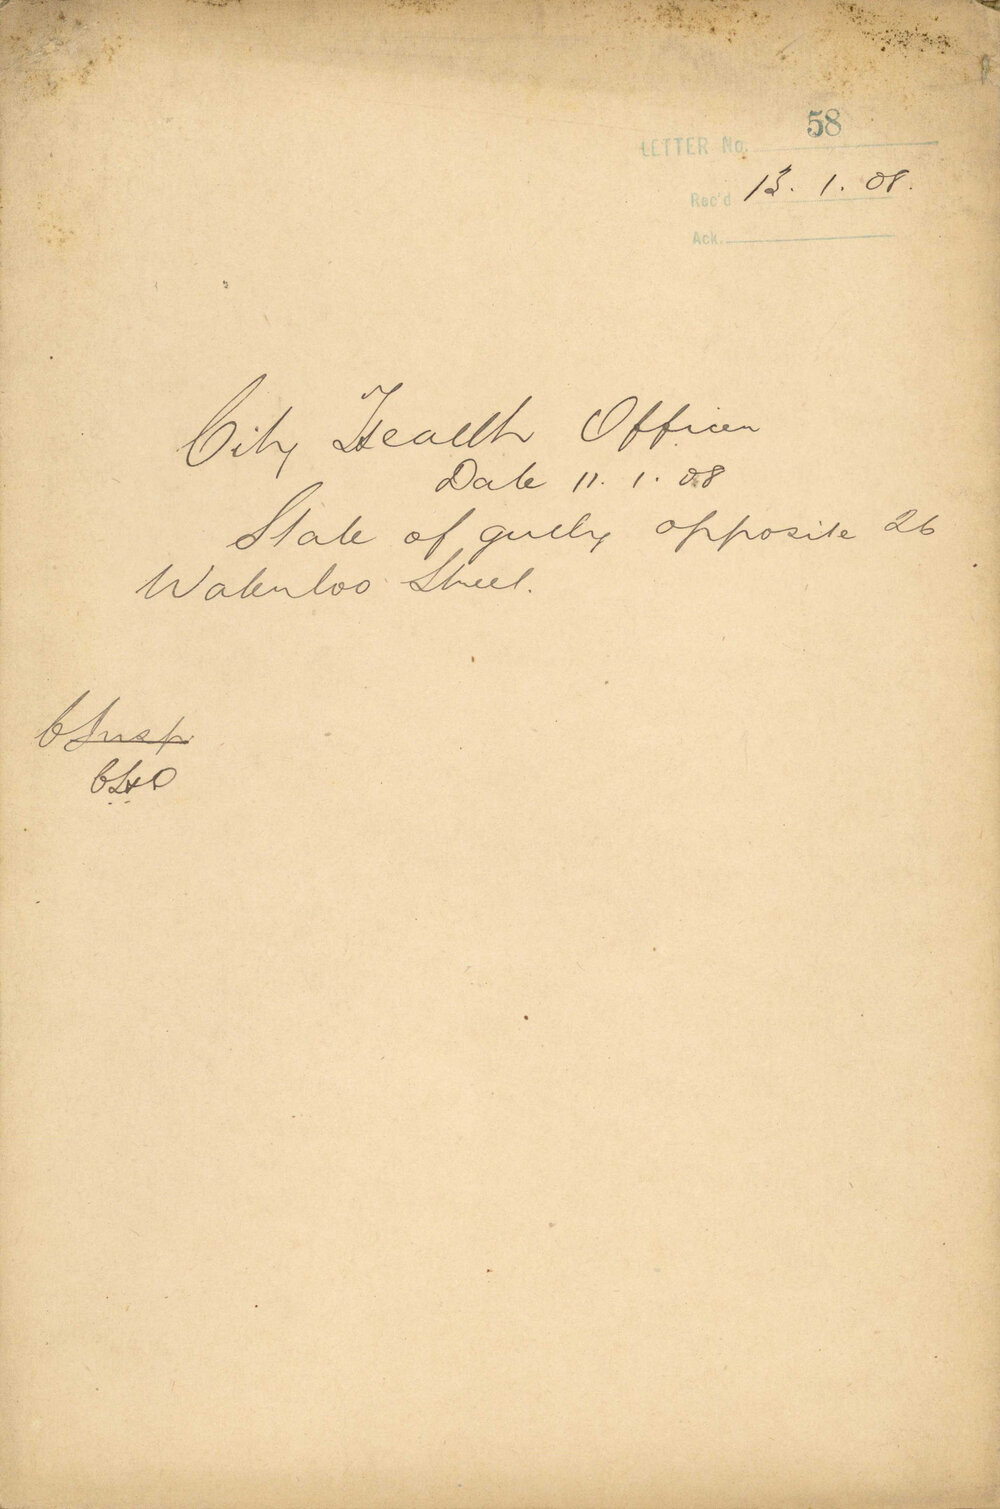 LETTER No. 58
Rec'd 13. 1. 08.
Ack.
City Health Officer
Date 11. 1. 08
State of gully opposite 26
Waterloo Street.
C Insp
CHO